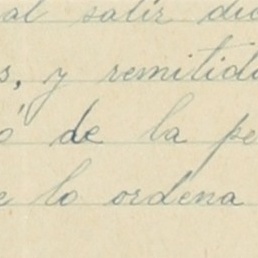 al salir dic
s, y remitida
ó de la pe
e lo ordena